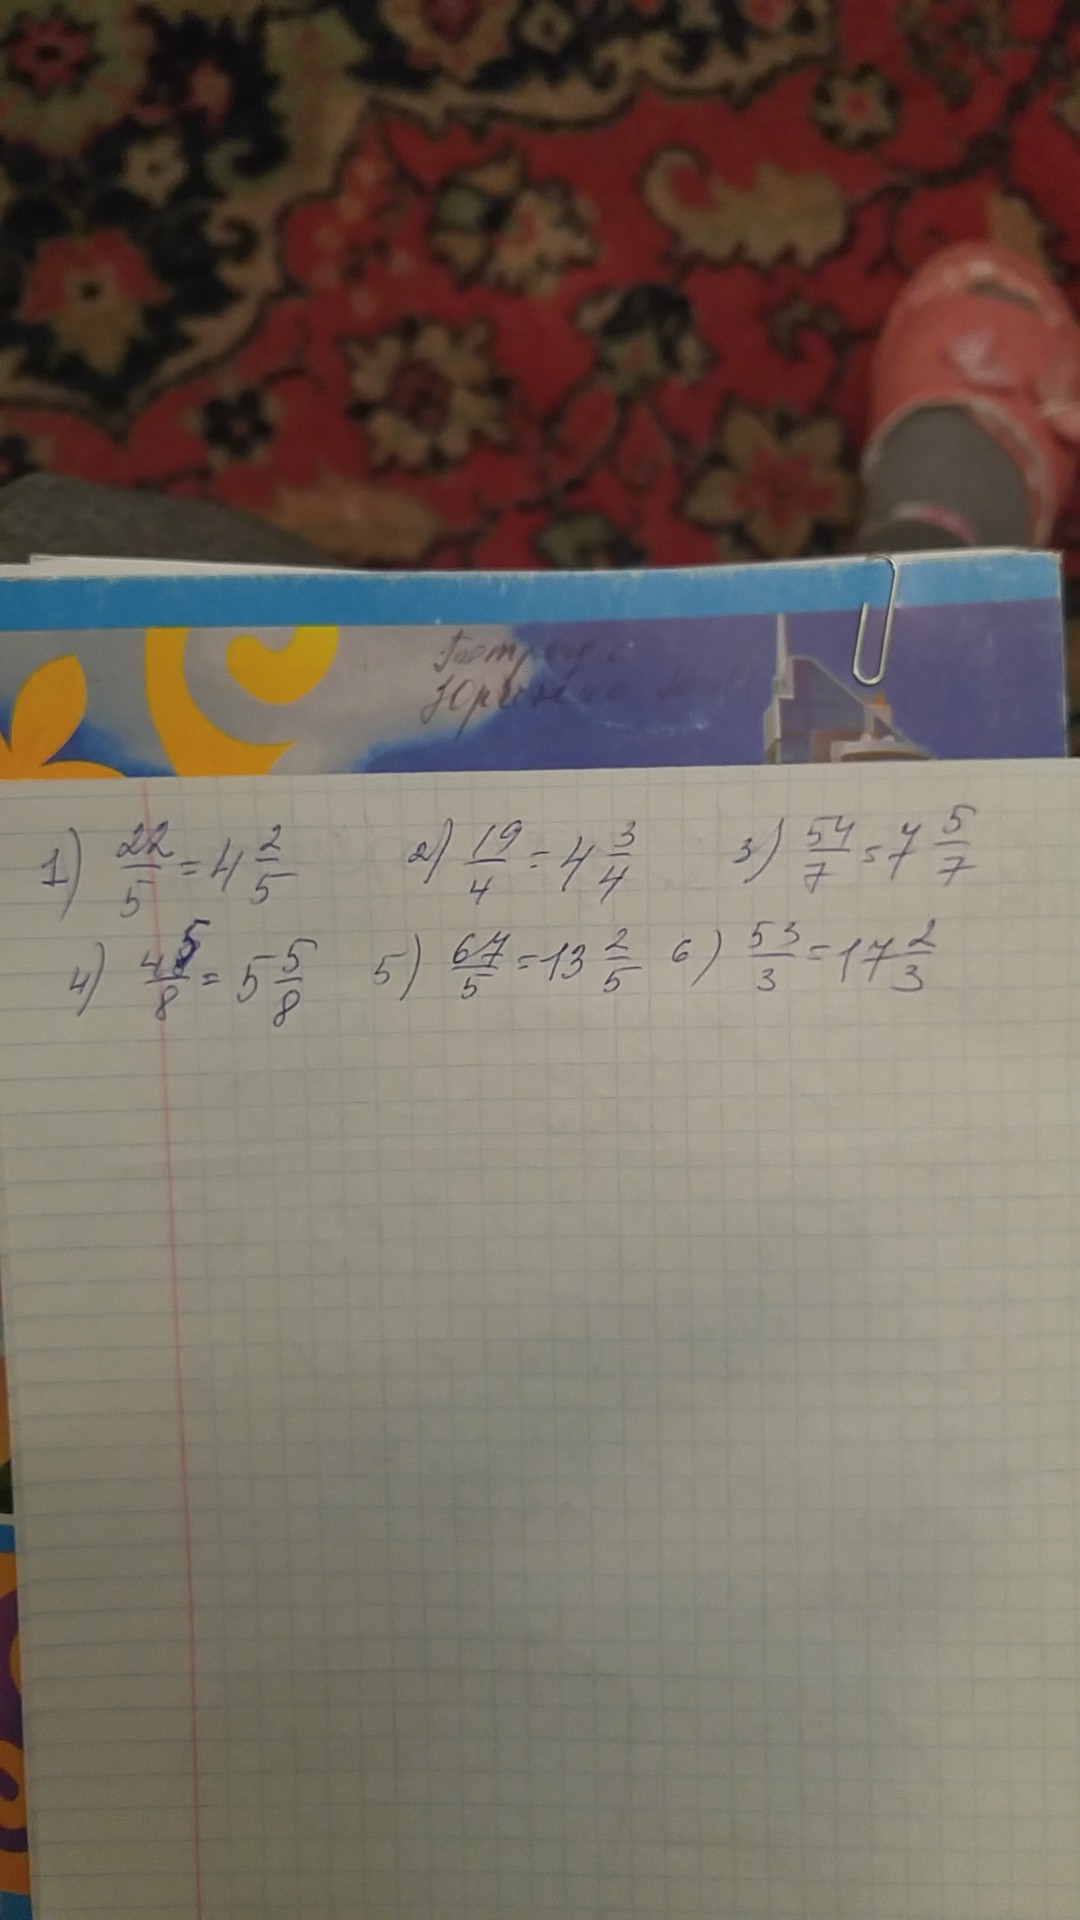 1) 22/5 = 4 2/5 2) 19/4 = 4 3/4 3) 54/7 = 7 5/7
4) 45/8 = 5 5/8 5) 67/5 = 13 2/5 6) 53/3 = 17 2/3